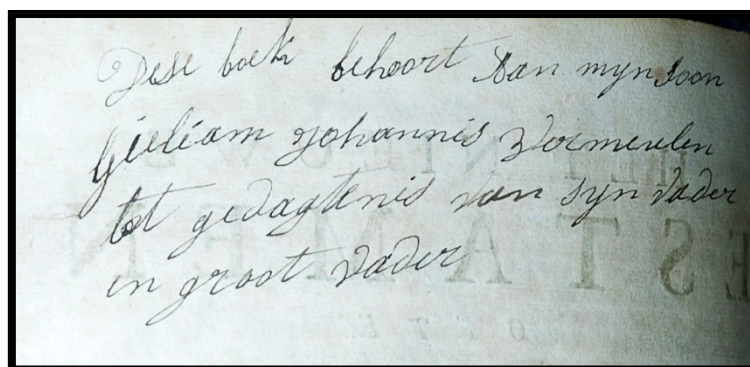 Dese boek behoort aan myn soon
Gieliam Johannis Vermeulen
tot gedagtenis van syn vader
en groot vader